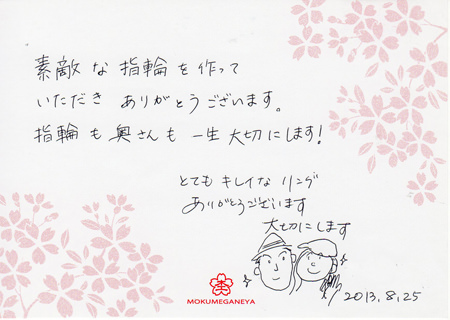 素敵な指輪を作って
いただきありがとうございます。
指輪も奥さんも一生大切にします!
とてもキレイなリング
ありがとうございます
大切にします
MOKUMEGANEYA
2013.8.25